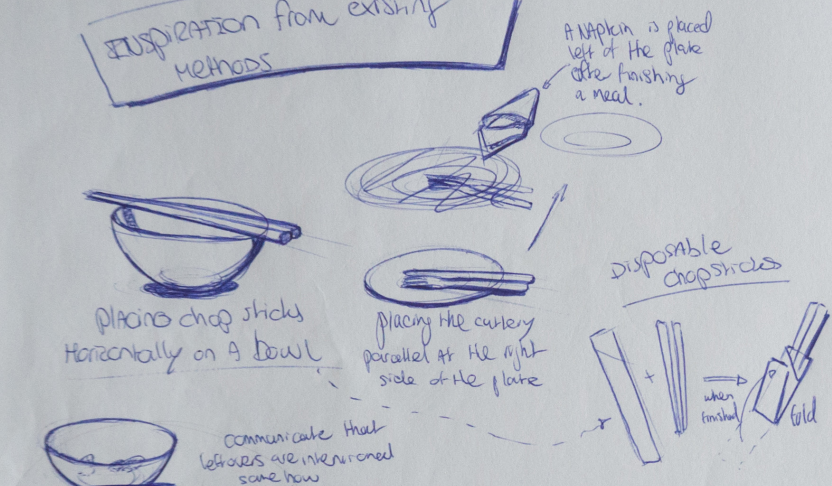 INSPIRATION from existing
Methods
A NAPkin is placed
left of the plate
after finishing
a meal.
placing chop sticks
Horizontally on A bowl
placing the cutlery
parallel At the right
side of the plate
Disposable
chopsticks
+
when
finished
fold
communicate that
leftovers are intentioned
some how